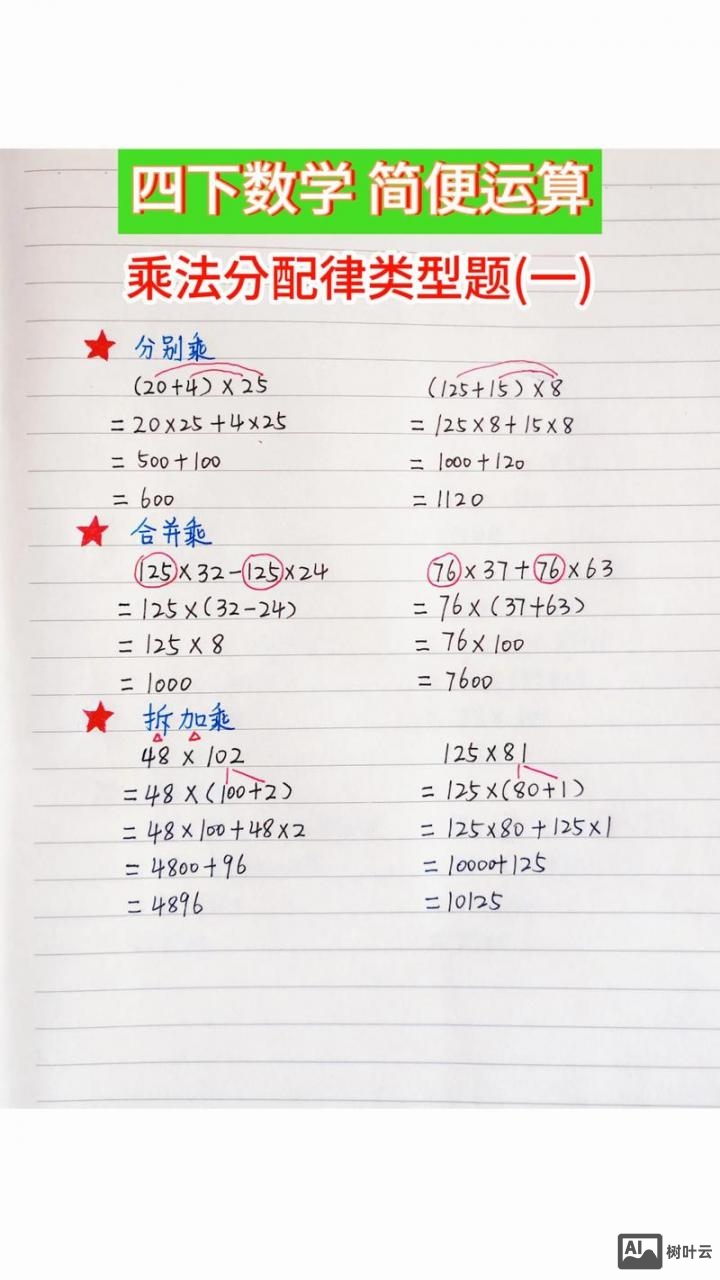 四下数学 简便运算
乘法分配律类型题(一)
★ 分别乘
(20+4)×25
=20×25+4×25
=500+100
=600
(125+15)×8
=125×8+15×8
=1000+120
=1120
★ 合并乘
125×32-125×24
=125×(32-24)
=125×8
=1000
76×37+76×63
=76×(37+63)
=76×100
=7600
★ 拆加乘
48×102
=48×(100+2)
=48×100+48×2
=4800+96
=4896
125×81
=125×(80+1)
=125×80+125×1
=10000+125
=10125
AI 树叶云